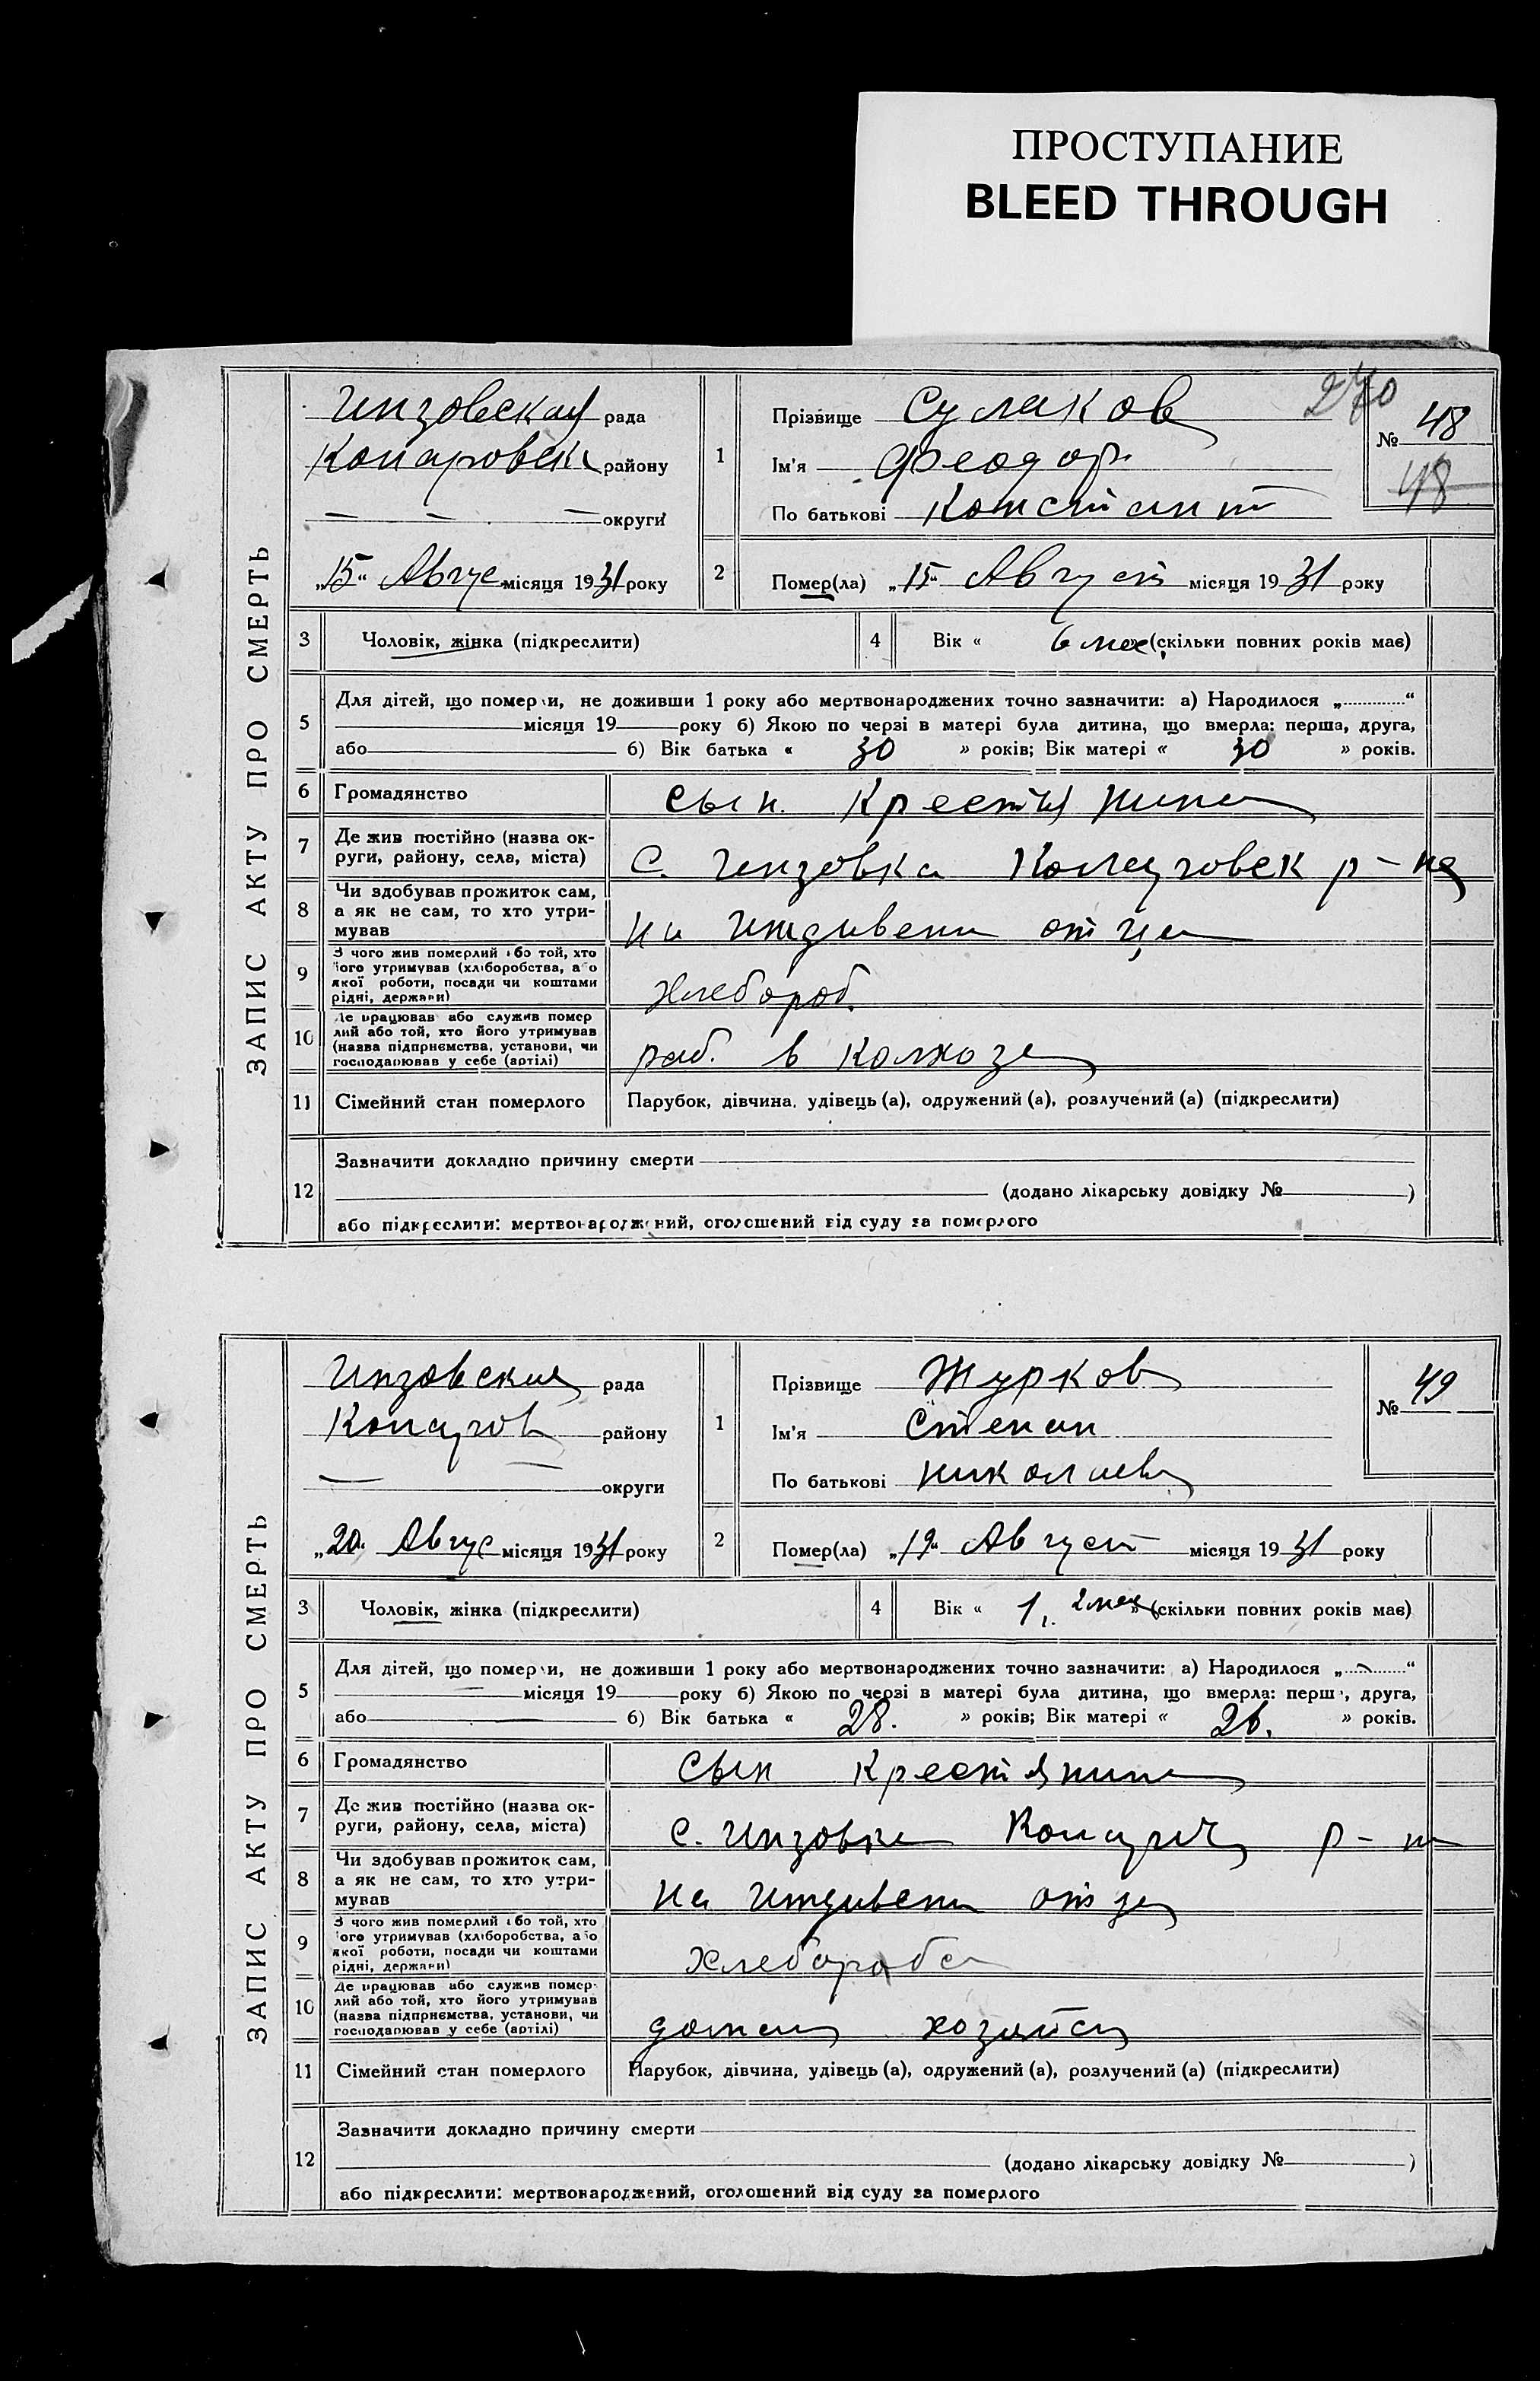 ПРОСТУПАНИЕ
BLEED THROUGH
270
ЗАПИС АКТУ ПРО СМЕРТЬ
Инзовская рада
района
— — — округи
„15“ Авгус місяця 1931 року
1
Прізвище Сулаков
Ім'я Феодор
По батькові Констант
№ 48
48
2 Помер(ла) „15“ Август місяця 1931 року
3 Чоловік, жінка (підкреслити)
4 Вік « 6 мес (скільки повних років має)
5 Для дітей, що померли, не доживши 1 року або мертвонароджених точно зазначити: а) Народилося „ “
місяця 19 року б) Якою по черзі в матері була дитина, що вмерла: перша, друга,
або б) Вік батька « 30 » років; Вік матері « 30 » років.
6 Громадянство сын крестьянина
7 Де жив постійно (назва ок-
руги, району, села, міста) С. Инзовка р-на
8 Чи здобував прожиток сам,
а як не сам, то хто утри-
мував на иждивени отца
9 З чого жив померлий або той, хто
його утримував (хліборобства, або
якої роботи, посади чи коштами
рідні, держави) хлебороб.
10 Де працював або служив помер
лий або той, хто його утримував
(назва підприємства, установи, чи
господарював у себе (артілі) раб. в колхозе
11 Сімейний стан померлого Парубок, дівчина, удівець (а), одружений (а), розлучений (а) (підкреслити)
12 Зазначити докладно причину смерти
(додано лікарську довідку № )
або підкреслити: мертвонароджений, оголошений від суду за померлого
ЗАПИС АКТУ ПРО СМЕРТЬ
Инзовская рада
району
— — округи
„20“ Авгус місяця 1931 року
1
Прізвище Журков
Ім'я Степан
По батькові Николаев
№ 49
2 Помер(ла) „19“ Август місяця 1931 року
3 Чоловік, жінка (підкреслити)
4 Вік « 1, 2 мес » (скільки повних років має)
5 Для дітей, що померли, не доживши 1 року або мертвонароджених точно зазначити: а) Народилося „ “
місяця 19 року б) Якою по черзі в матері була дитина, що вмерла: перша, друга,
або б) Вік батька « 28. » років; Вік матері « 26. » років.
6 Громадянство сын крестянина
7 Де жив постійно (назва ок-
руги, району, села, міста) с. Инзовка р-н
8 Чи здобував прожиток сам,
а як не сам, то хто утри-
мував на иждивени отца
9 З чого жив померлий або той, хто
його утримував (хліборобства, або
якої роботи, посади чи коштами
рідні, держави) Хлебороба
10 Де працював або служив помер-
лий або той, хто його утримував
(назва підприємства, установи, чи
господарював у себе (артілі)
11 Сімейний стан померлого Парубок, дівчина, удівець (а), одружений (а), розлучений (а) (підкреслити)
12 Зазначити докладно причину смерти
(додано лікарську довідку № )
або підкреслити: мертвонароджений, оголошений від суду за померлого